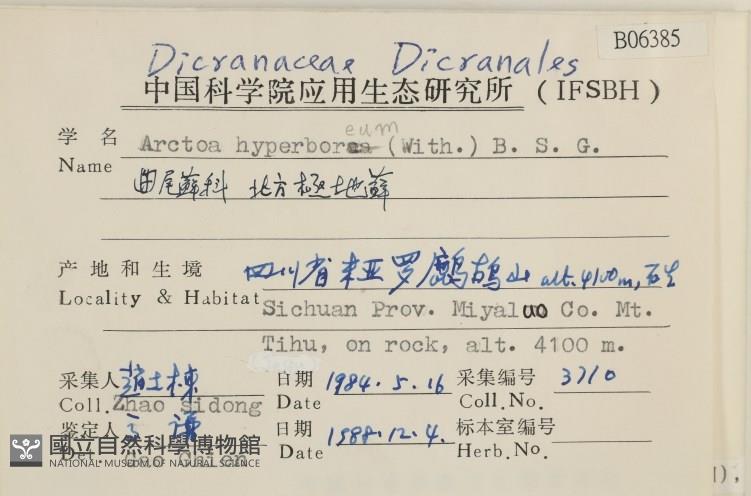 B06385
Dicranaceae Dicranales
中国科学院应用生态研究所 (IFSBH)
学名 Arctoa hyperborea eum (With.) B. S. G.
Name
曲尾蘚科 北方極地蘚
产地和生境 四川省 米亚罗鹧鸪山 alt. 4100m, 石生
Locality & Habitat Sichuan Prov. Miyaluo Co. Mt.
Tihu, on rock, alt. 4100 m.
采集人 日期 1984.5.16 采集编号 3710
Coll. Zhao sidong Date Coll.No.
鉴定人 高謙 日期 1988.12.4. 标本室编号
Det. Gao Chien Date Herb.No.
國立自然科學博物館
NATIONAL MUSEUM OF NATURAL SCIENCE
),